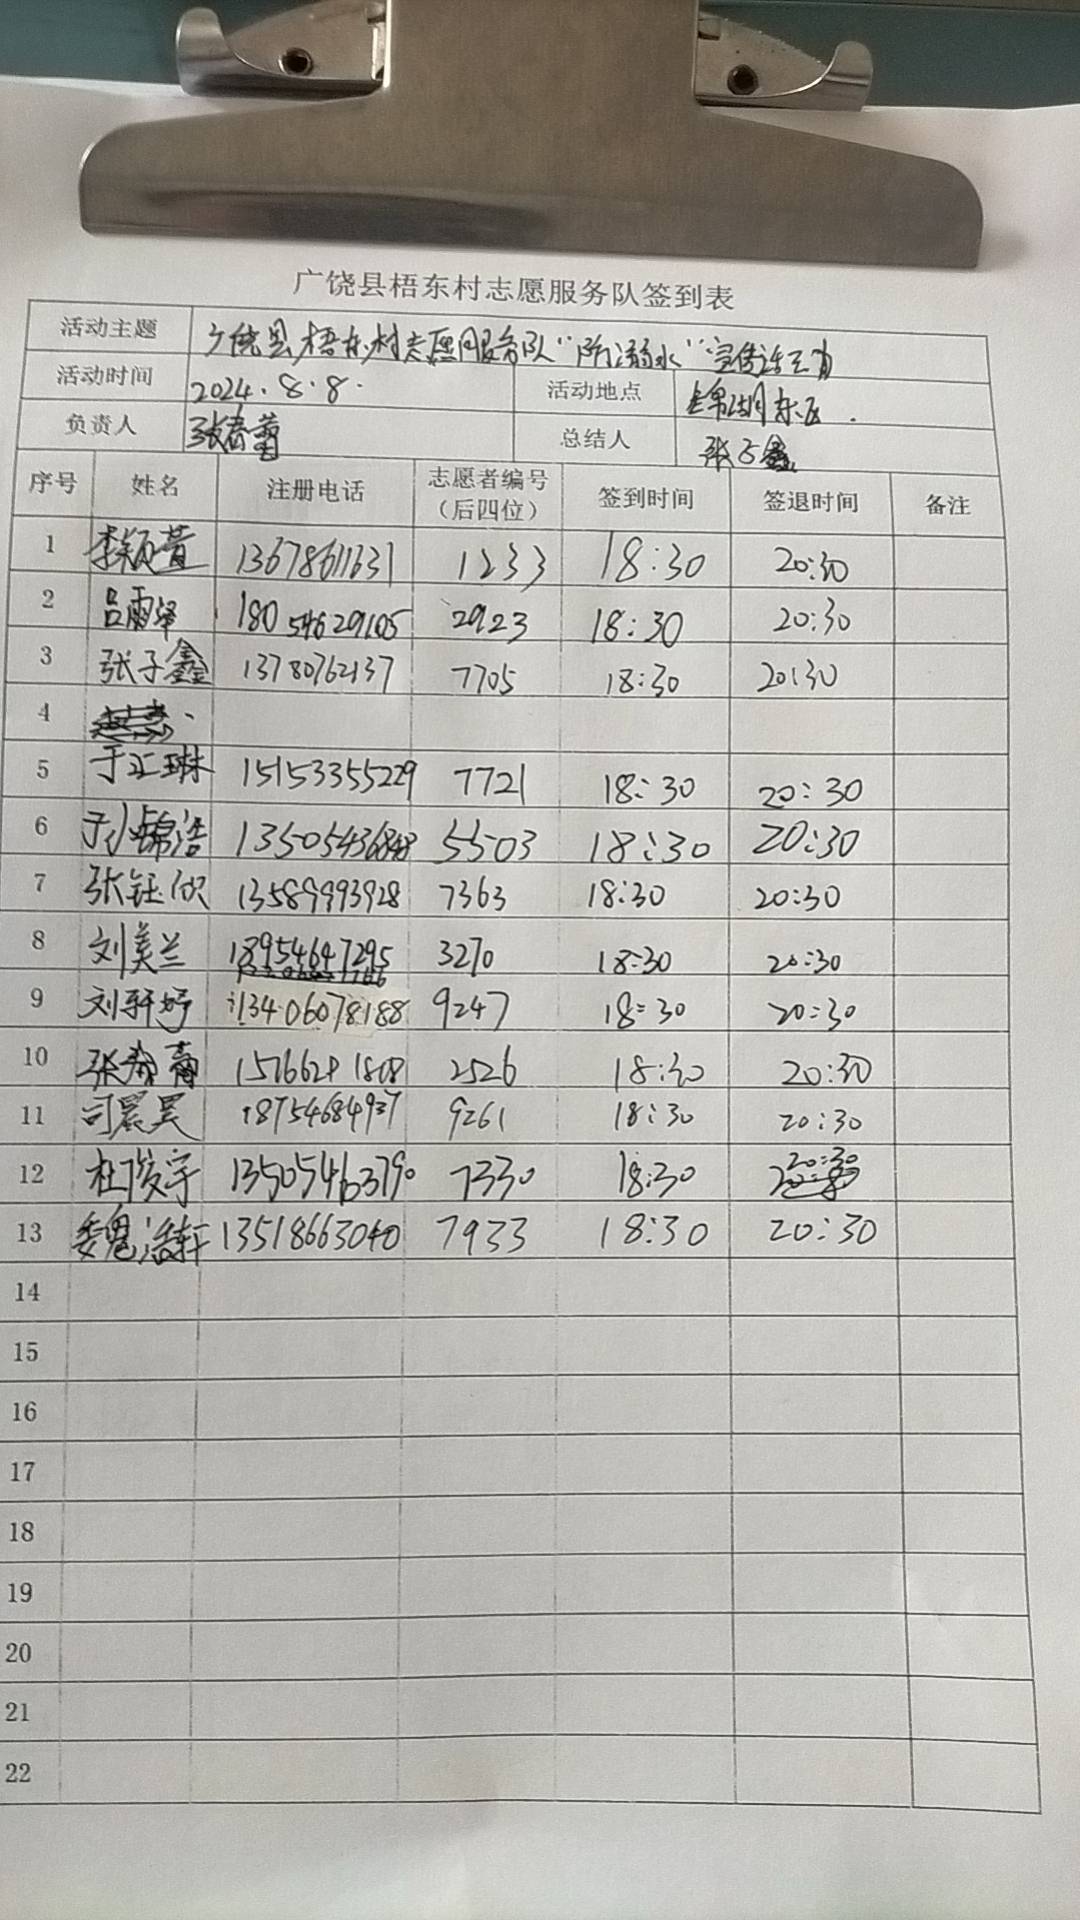 广饶县梧东村志愿服务队签到表
活动主题 广饶县梧东村志愿服务队“防溺水”宣传活动
活动时间 2024.8.8. 活动地点 锦湖东区.
负责人 张春蕾 总结人 张子鑫
序号 姓名 注册电话 志愿者编号（后四位） 签到时间 签退时间 备注
1 李颖萱 13678611631 1233 18:30 20:30
2 吕雨泽 18054629105 2923 18:30 20:30
3 张子鑫 13780762137 7705 18:30 20:30
4
5 于正琳 15153355229 7721 18:30 20:30
6 于小锦浩 13505436848 5503 18:30 20:30
7 张钰欣 13589993928 7363 18:30 20:30
8 刘美兰 18954647295 3270 18:30 20:30
9 刘轩妤 13406078188 9247 18:30 20:30
10 张春蕾 1808 2526 18:30 20:30
11 司晨昊 18754684937 9261 18:30 20:30
12 杜俊宇 13505463790 7330 18:30 20:30
13 魏浩轩 13518663040 7933 18:30 20:30
14
15
16
17
18
19
20
21
22